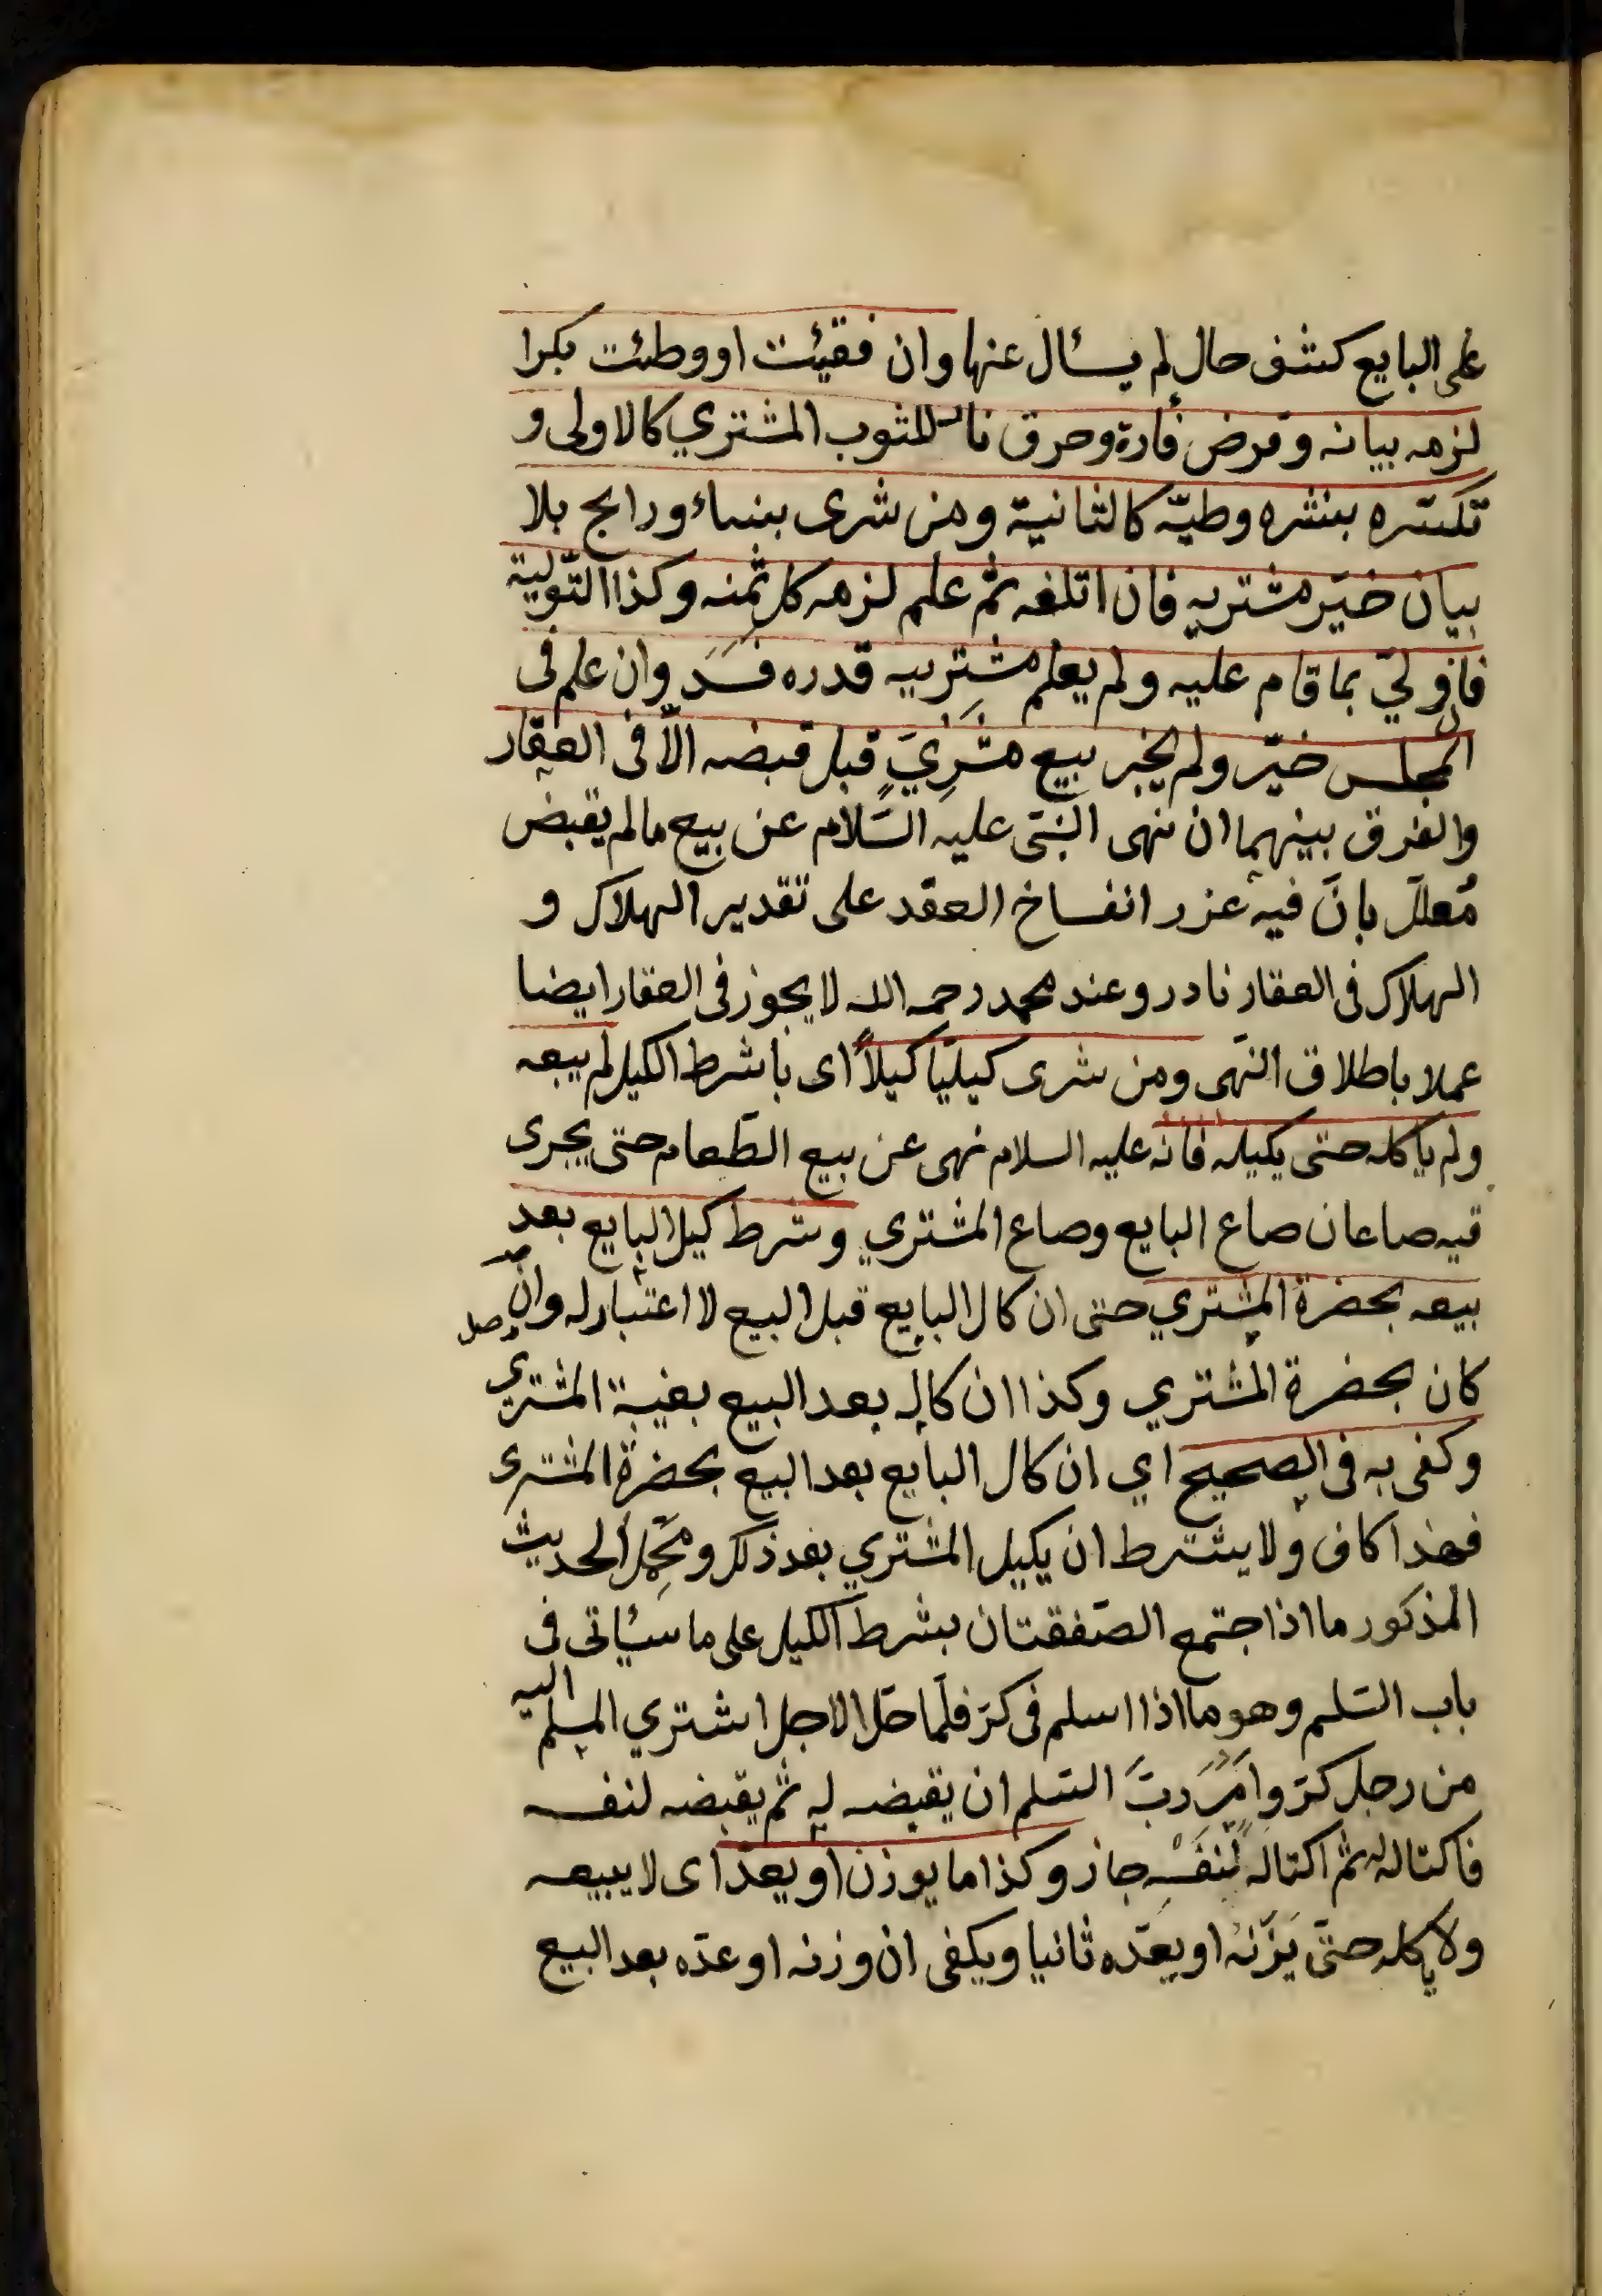 على البايع كشف حال لم يسأل عنها وان فقيئت او وطئت بكرا
لزمه بيانه وقرض فأرة وحرق نار للثوب المشتري كالاولى و
تكسّره بنشره وطيّه كالثانية ومن شرى بنساء ورابح بلا
بيان خيّر مشتريه فان اتلفه ثم علم لزمه كل ثمنه وكذا التّولية
فان ولّي بما قام عليه ولم يعلم مشتريه قدره فسد وان علم فى
المجلس خيّر ولم يجز بيع مشرِيٍّ قبل قبضه الاّ فى العقار
والفرق بينهما ان نهى النّبىّ عليه السّلام عن بيع مالم يقبض
مُعلل بانّ فيه غرر انفساخ العقد على تقدير الهلاك و
الهلاك فى العقار نادر وعند محمد رحمه الله لا يجوز فى العقار ايضا
عملا باطلاق النّهى ومن شرى كيليّا كيلاً اى بشرط الكيل لم يبعه
ولم ياكله حتى يكيله فانه عليه السلام نهى عن بيع الطّعام حتى يجرى
فيه صاعان صاع البايع وصاع المشتري وشرط كيل البايع بعد
بيعه بحضرة المشتري حتى ان كال البايع قبل البيع لا اعتبار له وان وصل
كان بحضرة المشتري وكذا ان كاله بعد البيع بغيبة المشتري
وكفى به فى الصحيح اي ان كال البايع بعد البيع بحضرة المشترى
فهذا كاف ولا يشترط ان يكيل المشتري بعد ذلك ومحمِل الحديث
المذكور ما اذا اجتمع الصّفقتان بشرط الكيل على ما سيأتى فى
باب السّلم وهو ما اذا اسلم فى كرّ فلمّا حلّ الاجل اشتري المسلم اليه
من رجل كرّ وامَر ربَّ السّلم ان يقبضه له ثم يقبضه لنفسه
فاكتاله له ثم اكتاله لنفسه جاز وكذا ما يوزن او يعدّ اى لا يبيعه
ولا ياكله حتىّ يزنه او يعدّه ثانيا ويكفى ان وزنه او عدّه بعد البيع